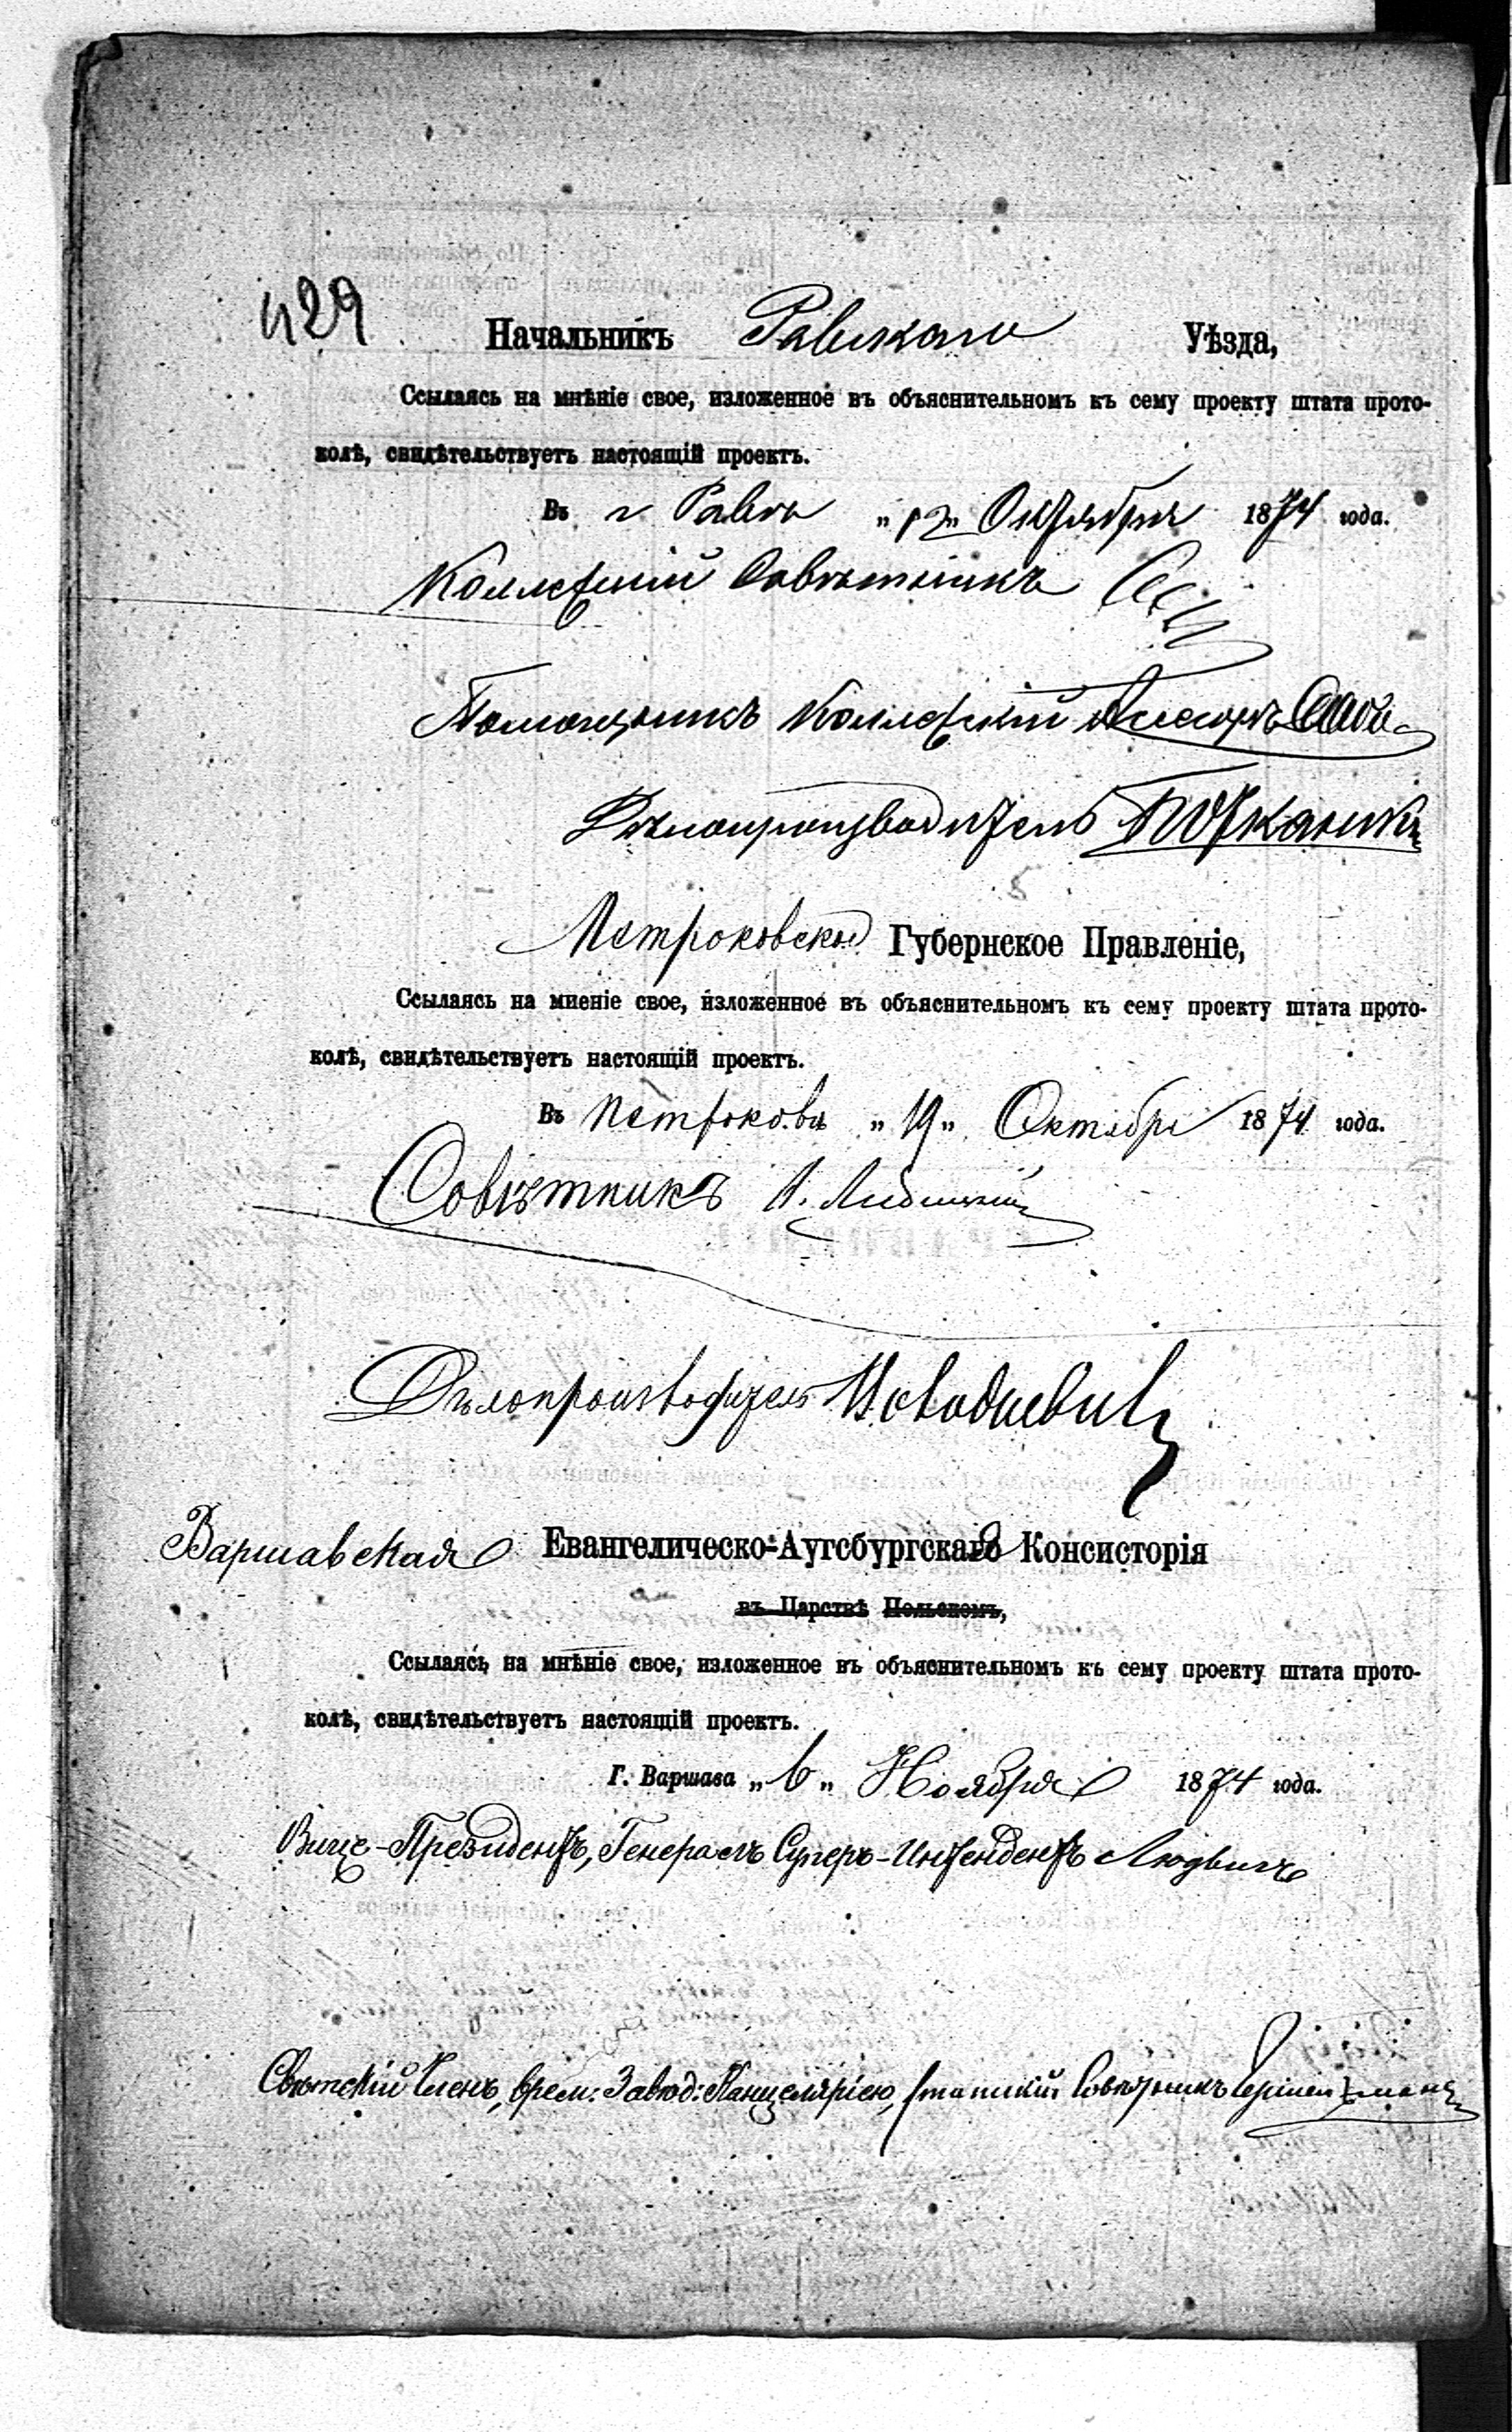 429
Начальникъ Равскаго Уѣзда,
Ссылаясь на мнѣніе свое, изложенное въ объяснительномъ къ сему проекту штата прото-
колѣ, свидѣтельствуетъ настоящій проектъ.
Въ г Равѣ „12„ Октября 1874 года.
Коллежскій Совѣтникъ
Помощникъ Коллежскій Асесоръ
Дѣлопроизводитель
Петроковское Губернское Правленіе,
Ссылаясь на миеніе свое, изложенное въ объяснительномъ къ сему проекту штата прото-
колѣ, свидѣтельствуетъ настоящій проектъ.
Въ Петроковѣ „19„ Октября 1874 года.
Совѣтникъ
Дѣлопроизводитель
Варшавская Евангелическо-Аугсбургская Консисторія
въ Царствѣ Польскомъ,
Ссылаясь на мнѣніе свое, изложенное въ объяснительномъ къ сему проекту штата прото-
колѣ, свидѣтельствуетъ настоящій проектъ.
Г. Варшава „6„ Ноября 1874 года.
Вице-Президентъ, Генералъ Суперъ-Интендентъ Людвигъ
Свѣтскій Членъ, врем: Завѣд: Канцеляріею, Статскій Совѣтникъ